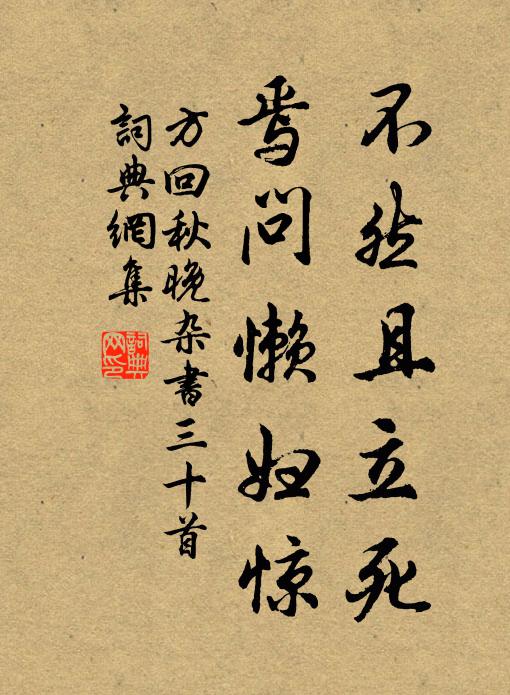 不然且立死
焉问懒妇惊
方回秋晚杂書三十首
詞典網集
詞典網印